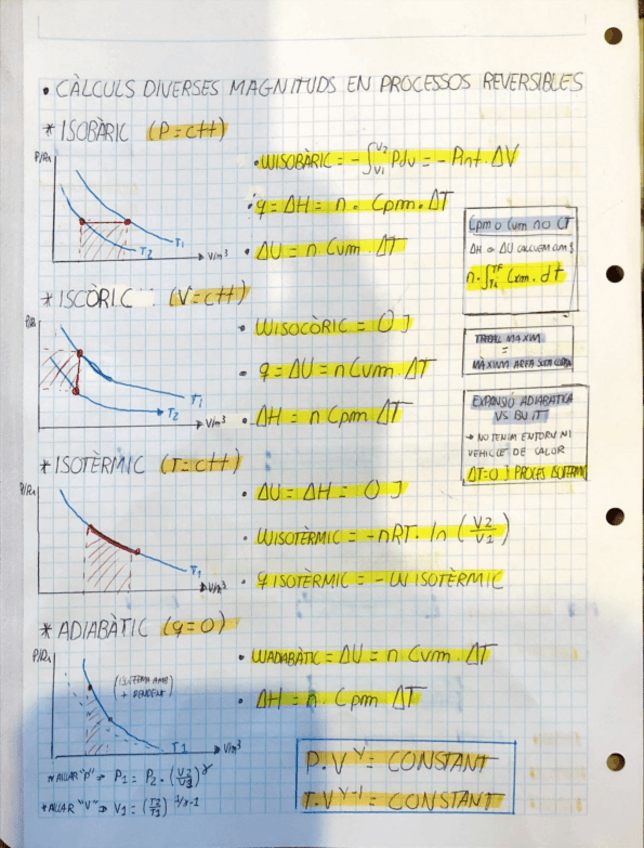 • CÀLCULS DIVERSES MAGNITUDS EN PROCESSOS REVERSIBLES
* ISOBÀRIC (P=ctt)
P/Pa
T1
T2
V/m³
• WISOBÀRIC = - ∫V1V2 Pdv = - Pint. ΔV
• q = ΔH = n. Cpm. ΔT
• ΔU = n Cvm ΔT
Cpm o Cvm no CT
n. ∫TiTF Cxm. dt
* ISCÒRIC (V=ctt)
P/Pa
T1
T2
V/m³
• WISOCÒRIC = 0 J
• q = ΔU = n Cvm ΔT
• ΔH = n Cpm ΔT
TREBALL MÀXIM
=
MÀXIMA ÀREA SOTA CORBA
EXPANSIÓ ADIABATICA
VS BUIT
→ NO TENIM ENTORN NI
VEHICLE DE CALOR
ΔT=0 } PROCES ISOTERMIC
* ISOTÈRMIC (T=ctt)
P/Pa
T1
V/m³
• ΔU = ΔH = 0 J
• WISOTÈRMIC = -nRT. ln (V2/V1)
• q ISOTÈRMIC = - W ISOTÈRMIC
* ADIABÀTIC (q=0)
P/Pa
(ISOTERMA AMB
+ PENDENT)
T1
V/m³
• WADABÀTIC = ΔU = n Cvm. ΔT
• ΔH = n. Cpm ΔT
P.V^γ = CONSTANT
T.V^γ-1 = CONSTANT
* AÏLLAR "P" ⇒ P1 = P2. (V2/V1)^γ
* AÏLLAR "V" ⇒ V1 = (T2/T1)^1/γ-1